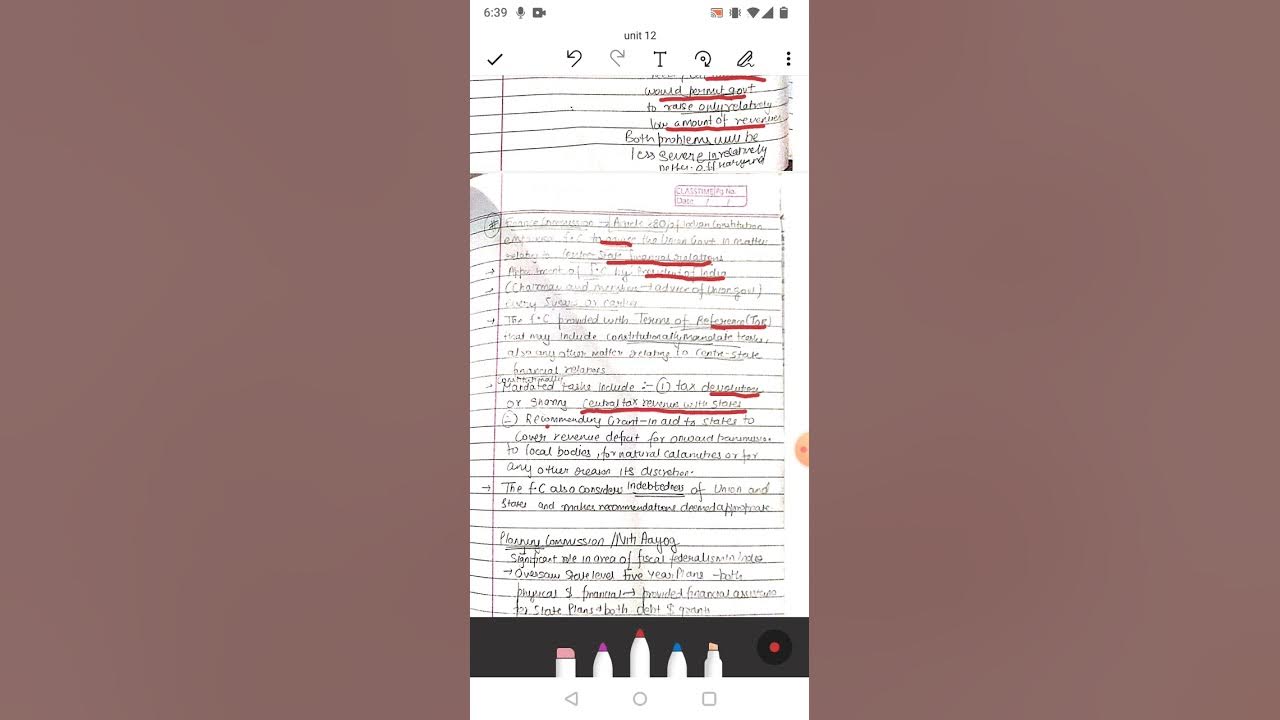 6:39
unit 12
would permit govt
to raise only relatively
low amount of revenues
Both problems will be
less severe in relatively
CLASSTIME Pg. No.
Date / /
Finance Commission → Article 280 of Indian Constitution
F.C to the Union Govt in matter
relating to Centre-State financial relations
→ Appointment of F.C by President of India
→ (Chairman and members → advice of Union govt)
every 5 years or earlier
→ The F.C provided with Terms of Reference (ToR)
that may include constitutionally mandate tasks,
also any other matter relating to Centre-State
financial relations
constitutionally
→ Mandated tasks include :- ① tax devolution
or sharing Central tax revenue with States
② Recommending Grant-in aid to states to
cover revenue deficit for onward transmission
to local bodies, for natural calamities or for
any other reason its discretion.
→ The F.C also considers indebtedness of Union and
States and makes recommendations deemed appropriate
Planning Commission /Niti Aayog
Significant role in area of fiscal federalism in India
→ Oversaw State level five year Plans - both
physical & financial → provided financial assistance
for State Plans → both debt & grants